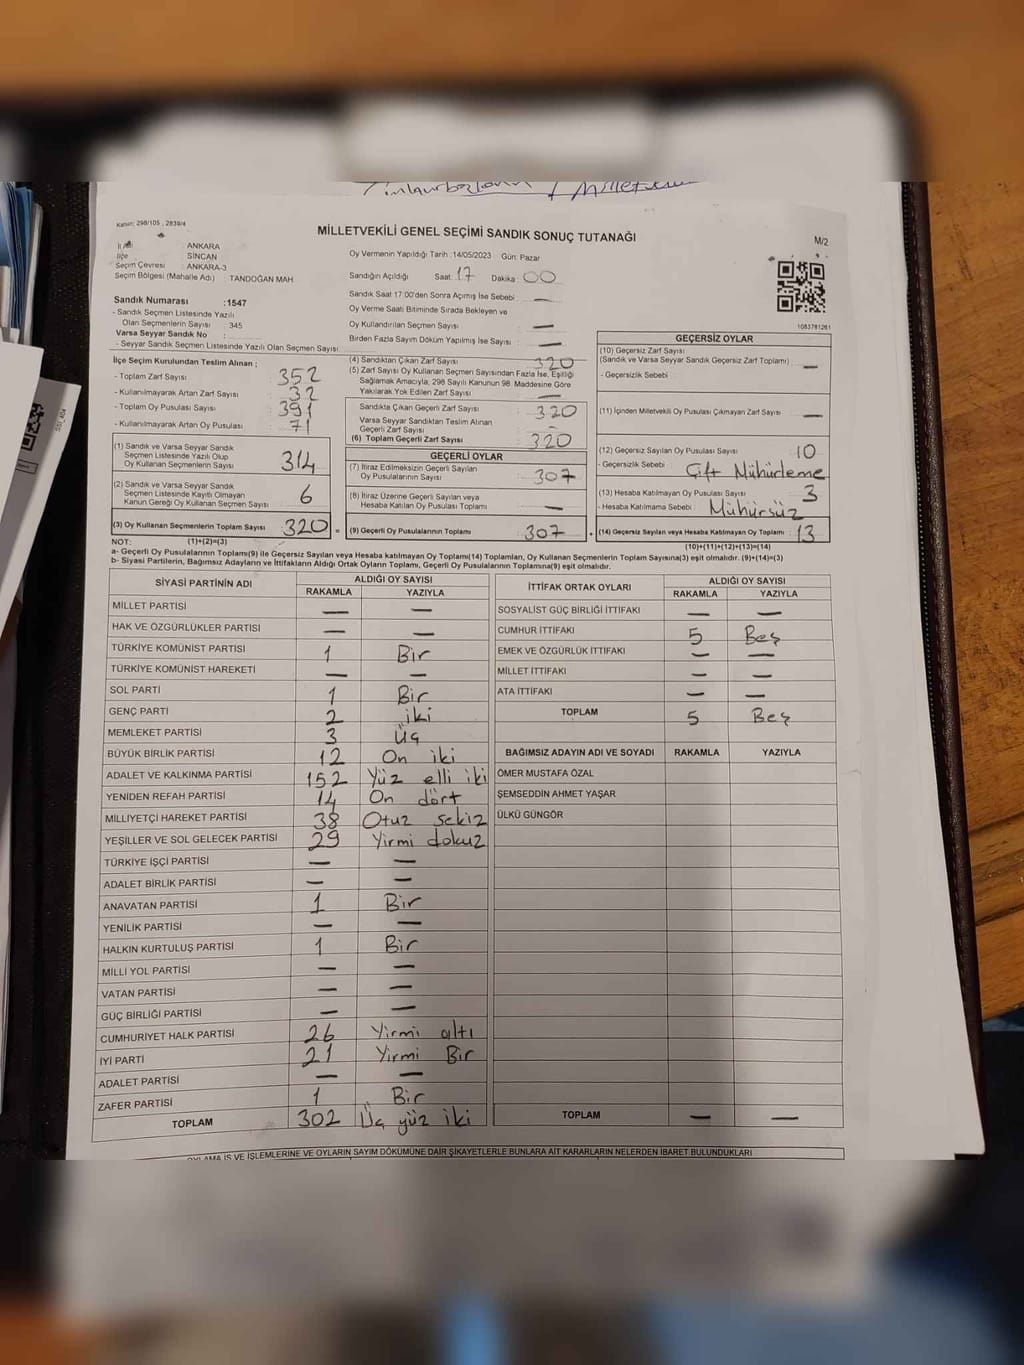 Kanun: 298/105 , 2839/4
MİLLETVEKİLİ GENEL SEÇİMİ SANDIK SONUÇ TUTANAĞI
M/2
İli ANKARA
İlçe SİNCAN
Seçim Çevresi ANKARA-3
Seçim Bölgesi (Mahalle Adı) : TANDOĞAN MAH.
Oy Vermenin Yapıldığı Tarih : 14/05/2023 Gün: Pazar
Sandığın Açıldığı Saat: 17 Dakika 00
Sandık Saat 17:00'den Sonra Açımış İse Sebebi : —
Oy Verme Saati Bitiminde Sırada Bekleyen ve
Oy Kullandırılan Seçmen Sayısı : —
Birden Fazla Sayım Döküm Yapılmış İse Sayısı : —
1083781261
Sandık Numarası :1547
- Sandık Seçmen Listesinde Yazılı
Olan Seçmenlerin Sayısı 345
Varsa Seyyar Sandık No :
- Seyyar Sandık Seçmen Listesinde Yazılı Olan Seçmen Sayısı:
İlçe Seçim Kurulundan Teslim Alınan ;
- Toplam Zarf Sayısı : 352
- Kullanılmayarak Artan Zarf Sayısı : 32
- Toplam Oy Pusulası Sayısı : 391
- Kullanılmayarak Artan Oy Pusulası : 71
(1) Sandık ve Varsa Seyyar Sandık
Seçmen Listesinde Yazılı Olup
Oy Kullanan Seçmenlerin Sayısı : 314
(2) Sandık ve Varsa Seyyar Sandık
Seçmen Listesinde Kayıtlı Olmayan
Kanun Gereği Oy Kullanan Seçmen Sayısı : 6
(3) Oy Kullanan Seçmenlerin Toplam Sayısı : 320
(1)+(2)=(3)
(4) Sandıktan Çıkan Zarf Sayısı : 320
(5) Zarf Sayısı Oy Kullanan Seçmen Sayısından Fazla İse, Eşitliği
Sağlamak Amacıyla; 298 Sayılı Kanunun 98. Maddesine Göre
Yakılarak Yok Edilen Zarf Sayısı : —
Sandıkta Çıkan Geçerli Zarf Sayısı : 320
Varsa Seyyar Sandıktan Teslim Alınan
Geçerli Zarf Sayısı : -
(6) Toplam Geçerli Zarf Sayısı : 320
GEÇERLİ OYLAR
(7) İtiraz Edilmeksizin Geçerli Sayılan
Oy Pusulalarının Sayısı : 307
(8) İtiraz Üzerine Geçerli Sayılan veya
Hesaba Katılan Oy Pusulası Toplamı : —
(9) Geçerli Oy Pusulalarının Toplamı : 307
GEÇERSİZ OYLAR
(10) Geçersiz Zarf Sayısı
(Sandık ve Varsa Seyyar Sandık Geçersiz Zarf Toplamı) : —
- Geçersizlik Sebebi :
(11) İçinden Milletvekili Oy Pusulası Çıkmayan Zarf Sayısı : —
(12) Geçersiz Sayılan Oy Pusulası Sayısı : 10
- Geçersizlik Sebebi : Çift Mühürleme
(13) Hesaba Katılmayan Oy Pusulası Sayısı : 3
- Hesaba Katılmama Sebebi : Mühürsüz
(14) Geçersiz Sayılan veya Hesaba Katılmayan Oy Toplamı : 13
(10)+(11)+(12)+(13)=(14)
NOT:
a- Geçerli Oy Pusulalarının Toplamı(9) ile Geçersiz Sayılan veya Hesaba katılmayan Oy Toplamı(14) Toplamları, Oy Kullanan Seçmenlerin Toplam Sayısına(3) eşit olmalıdır. (9)+(14)=(3)
b- Siyasi Partilerin, Bağımsız Adayların ve İttifakların Aldığı Ortak Oyların Toplamı, Geçerli Oy Pusulalarının Toplamına(9) eşit olmalıdır.
SİYASİ PARTİNİN ADI ALDIĞI OY SAYISI
RAKAMLA YAZIYLA
MİLLET PARTİSİ — —
HAK VE ÖZGÜRLÜKLER PARTİSİ — —
TÜRKİYE KOMÜNİST PARTİSİ 1 Bir
TÜRKİYE KOMÜNİST HAREKETİ — —
SOL PARTİ 1 Bir
GENÇ PARTİ 2 iki
MEMLEKET PARTİSİ 3 Üç
BÜYÜK BİRLİK PARTİSİ 12 On iki
ADALET VE KALKINMA PARTİSİ 152 Yüz elli iki
YENİDEN REFAH PARTİSİ 14 On dört
MİLLİYETÇİ HAREKET PARTİSİ 38 Otuz sekiz
YEŞİLLER VE SOL GELECEK PARTİSİ 29 Yirmi dokuz
TÜRKİYE İŞÇİ PARTİSİ — —
ADALET BİRLİK PARTİSİ — —
ANAVATAN PARTİSİ 1 Bir
YENİLİK PARTİSİ — —
HALKIN KURTULUŞ PARTİSİ 1 Bir
MİLLİ YOL PARTİSİ — —
VATAN PARTİSİ — —
GÜÇ BİRLİĞİ PARTİSİ — —
CUMHURİYET HALK PARTİSİ 26 Yirmi altı
İYİ PARTİ 21 Yirmi Bir
ADALET PARTİSİ — —
ZAFER PARTİSİ 1 Bir
TOPLAM 302 Üç yüz iki
İTTİFAK ORTAK OYLARI ALDIĞI OY SAYISI
RAKAMLA YAZIYLA
SOSYALİST GÜÇ BİRLİĞİ İTTİFAKI — —
CUMHUR İTTİFAKI 5 Beş
EMEK VE ÖZGÜRLÜK İTTİFAKI — —
MİLLET İTTİFAKI — —
ATA İTTİFAKI — —
TOPLAM 5 Beş
BAĞIMSIZ ADAYIN ADI VE SOYADI RAKAMLA YAZIYLA
ÖMER MUSTAFA ÖZAL
ŞEMSEDDİN AHMET YAŞAR
ÜLKÜ GÜNGÖR
TOPLAM — —
OYLAMA İŞ VE İŞLEMLERİNE VE OYLARIN SAYIM DÖKÜMÜNE DAİR ŞİKAYETLERLE BUNLARA AİT KARARLARIN NELERDEN İBARET BULUNDUKLARI